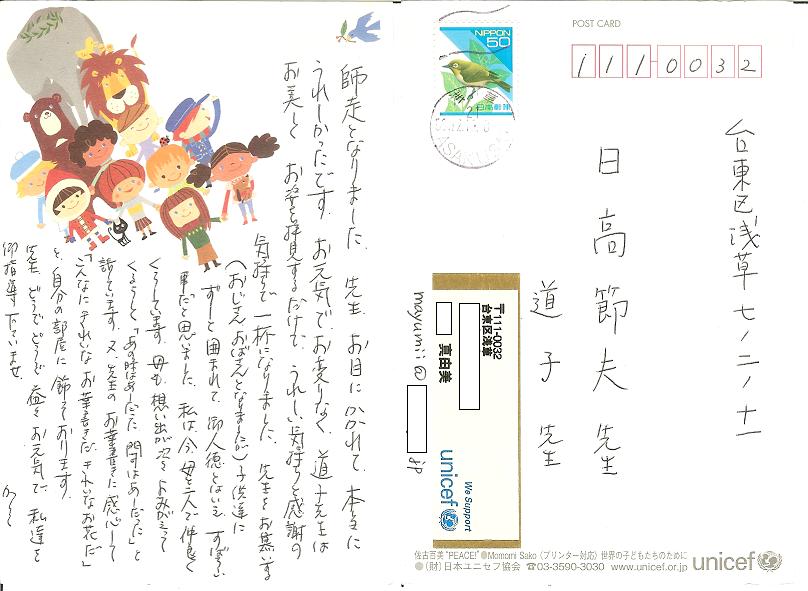 師走となりました。先生、お目にかかれて、本当に
うれしかったです。お元気で、お変りなく、道子先生は
お美しく、お姿を拝見するだけで、うれしい気持ちと感謝の
気持ちで一杯になりました。先生をお慕いする
(おじさん、おばさんとなりましたが)子供達に
ずーと囲まれて、御人徳とはいえ、すばらしい
事だと思いました。私は、今、母と二人で仲良く
くらしています。母も、想い出が次々よみがえって
くるらしく「あの時はあーだった、問はあーだった」と
話しています。又、先生のお葉書きに感心して
「こんなにきれいなお葉書きだ、きれいなお花だ」
と、自分の部屋に飾っております。
先生、どうぞどうぞ益々お元気で、私達を
御指導下さいませ。
かしこ
POST CARD
111-0032
NIPPON
50
日本郵便
ASAKUSA
台東区浅草七ノ二ノ十一
日高節夫先生
道子先生
〒111-0032
台東区浅草
真由美
mayumii@
jp
We Support
unicef
佐古百美 "PEACE!" ●Momomi Sako〈プリンター対応〉世界の子どもたちのために
●(財)日本ユニセフ協会 ☎03-3590-3030 www.unicef.or.jp
unicef